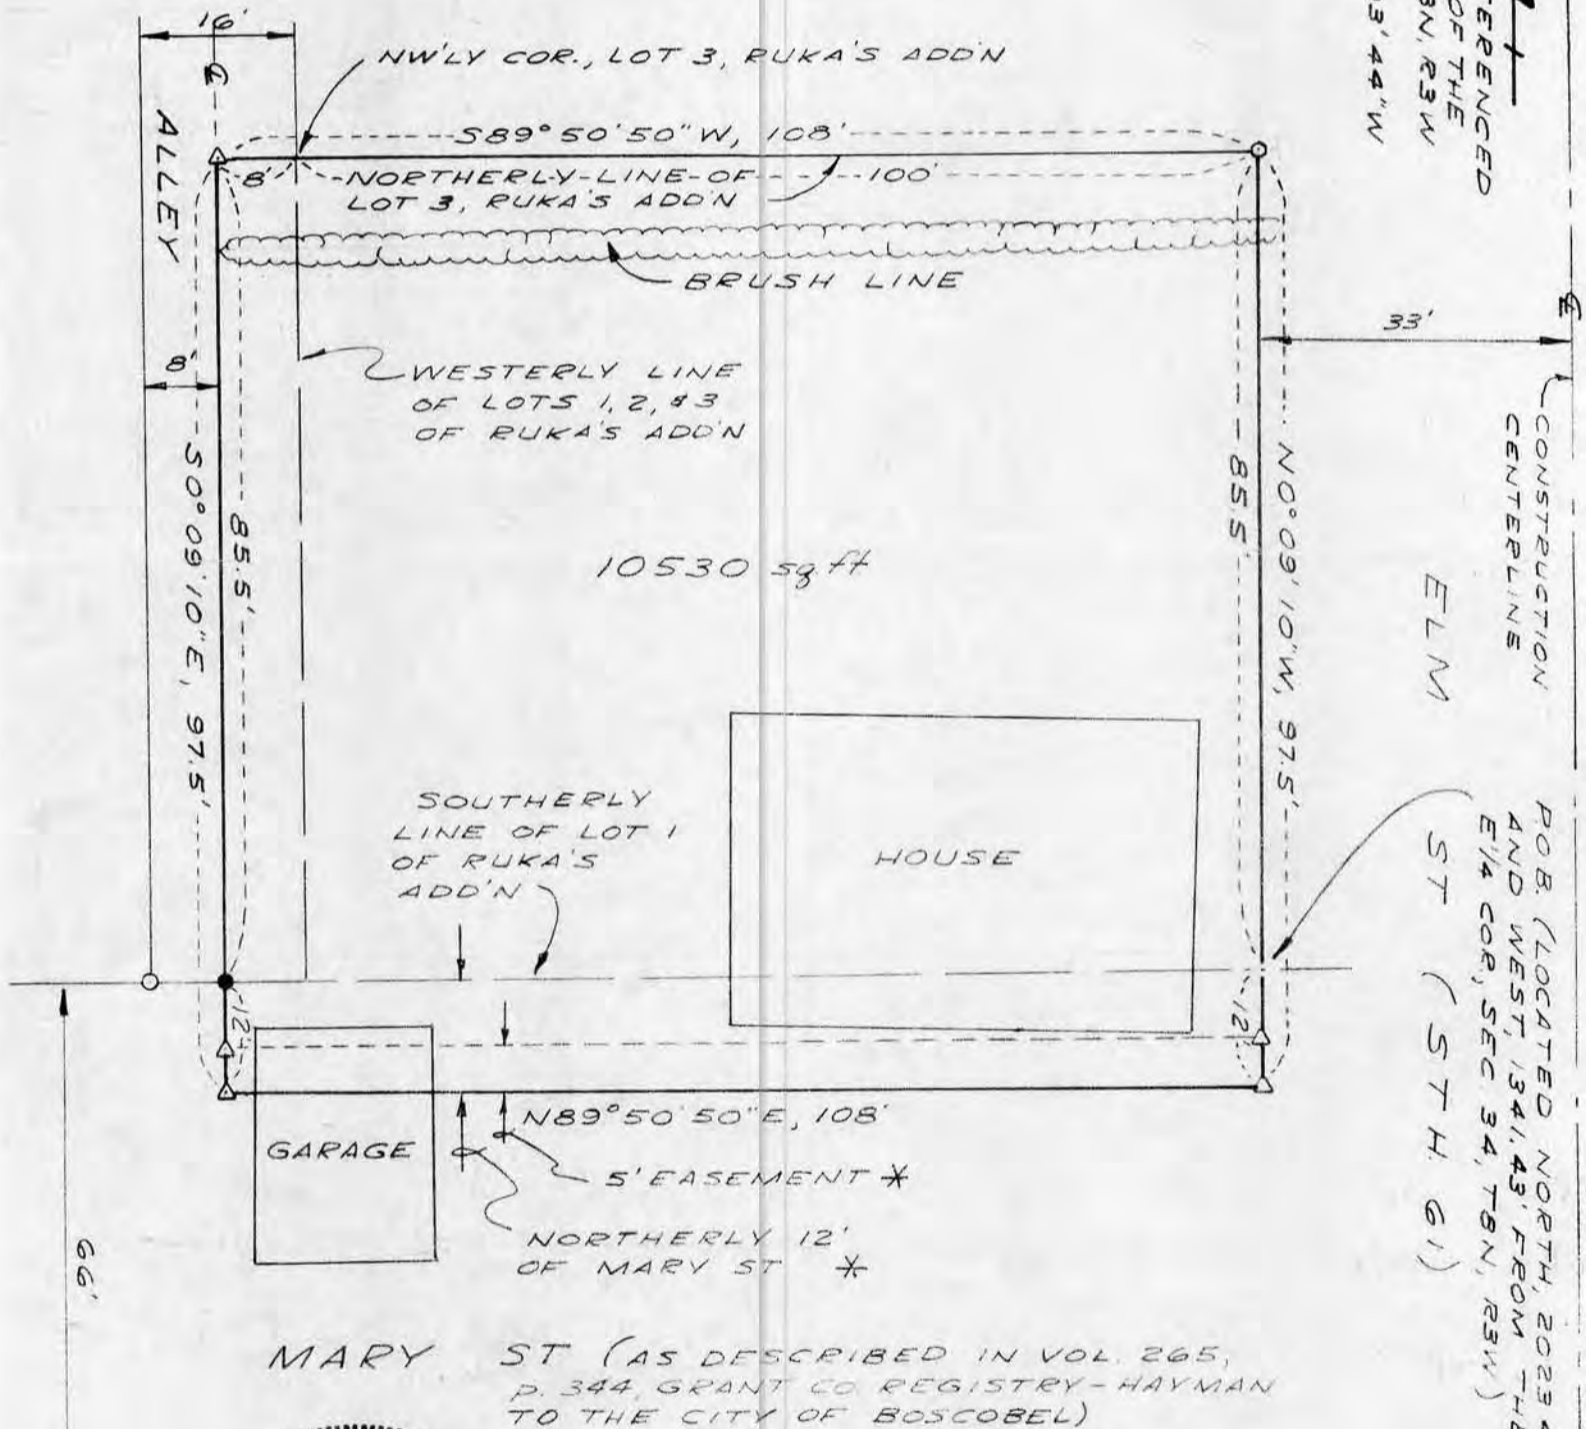 16'
℄
NW'LY COR., LOT 3, RUKA'S ADD'N
S89°50'50"W, 108'
8'
NORTHERLY LINE OF
LOT 3, RUKA'S ADD'N
100'
BRUSH LINE
ALLEY
8'
WESTERLY LINE
OF LOTS 1, 2, & 3
OF RUKA'S ADD'N
S0°09'10"E, 97.5'
85.5'
10530 sq ft
85.5'
N0°09'10"W, 97.5'
33'
℄
TERENCED
OF THE
8N, R3W
33'44"W
CONSTRUCTION
CENTERLINE
ELM ST (STH 61)
P.O.B. (LOCATED NORTH, 2023
AND WEST, 1341.43' FROM THE
E1/4 COR., SEC 34, T8N, R3W)
SOUTHERLY
LINE OF LOT 1
OF RUKA'S
ADD'N
HOUSE
12'
12'
N89°50'50"E, 108'
GARAGE
5' EASEMENT *
NORTHERLY 12'
OF MARY ST *
66'
MARY ST (AS DESCRIBED IN VOL. 265,
P. 344, GRANT CO. REGISTRY-HAYMAN
TO THE CITY OF BOSCOBEL)